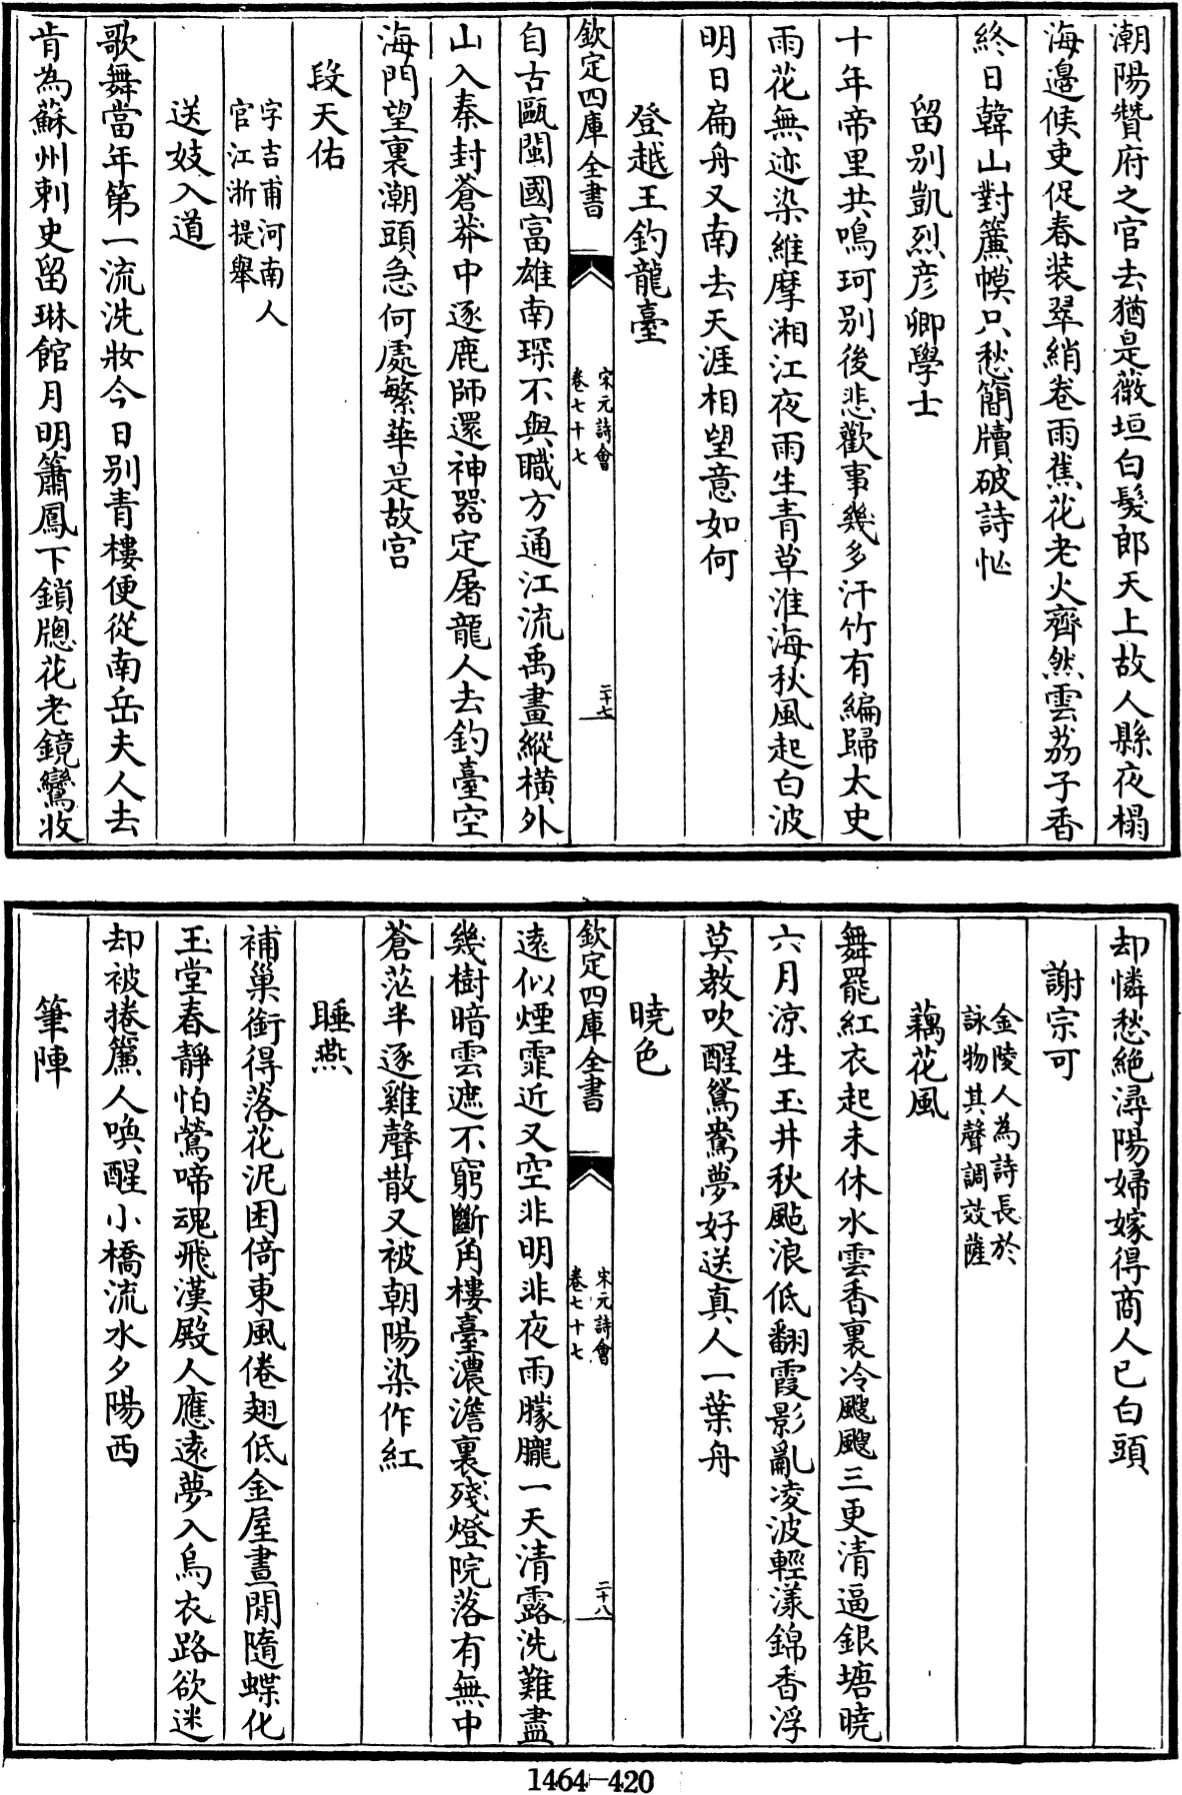 潮陽贊府之官去猶是薇垣白髮郎天上故人縣夜榻
海邉候吏促春装翠綃卷雨蕉花老火齊然雲荔子香
終日韓山對簾幙只愁簡牘破詩忙
留別凱烈彦卿學士
十年帝里共鳴珂别後悲歡事幾多汗竹有編歸太史
雨花無迹染維摩湘江夜雨生青草淮海秋風起白波
明日扁舟又南去天涯相望意如何
登越王釣龍臺
欽定四庫全書
宋元詩會
卷七十七
二十七
自古甌閩國富雄南琛不與職方通江流禹畫縱横外
山入秦封蒼莽中逐鹿師還神器定屠龍人去釣臺空
海門望裏潮頭急何處繁華是故宫
段天佑
字吉甫河南人
官江浙提舉
送妓入道
歌舞當年第一流洗妝今日别青樓便從南岳夫人去
肯為蘇州刺史留琳館月明簫鳳下鎖牕花老鏡鸞收
却憐愁絶潯陽婦嫁得商人已白頭
謝宗可
金陵人為詩長於
詠物其聲調效薩
藕花風
舞罷紅衣起未休水雲香裏冷颼颼三更清逼銀塘曉
六月凉生玉井秋颭浪低翻霞影亂凌波輕漾錦香浮
莫教吹醒鴛鴦夢好送真人一葉舟
曉色
欽定四庫全書
宋元詩會
卷七十七
二十八
逺似煙霏近又空非明非夜雨朦朧一天清露洗難盡
幾樹暗雲遮不窮斷角樓臺濃澹裏殘燈院落有無中
蒼茫半逐雞聲散又被朝陽染作紅
睡燕
補巢銜得落花泥困倚東風倦翅低金屋晝閒隨蝶化
玉堂春靜怕鶯啼魂飛漢殿人應逺夢入烏衣路欲迷
却被捲簾人喚醒小橋流水夕陽西
筆陣
1464-420